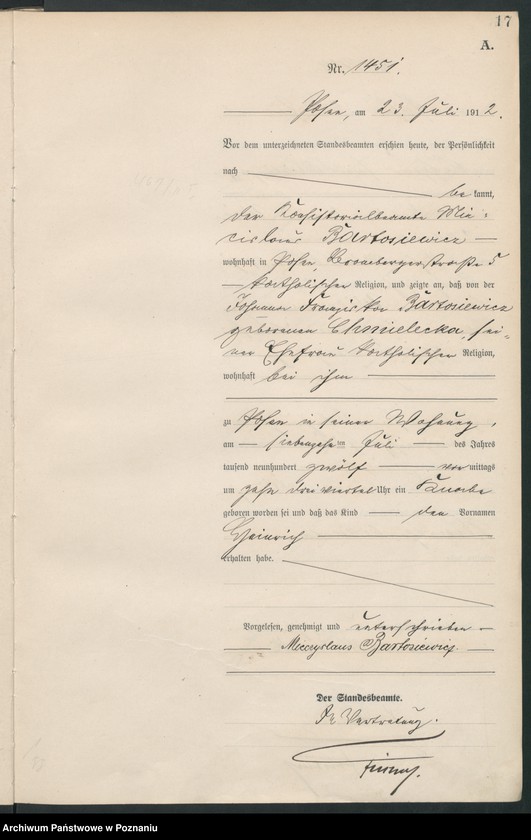 17
A.
Nr. 1451.
Posen, am 23. Juli 1912.
Vor dem unterzeichneten Standesbeamten erschien heute, der Persönlichkeit
nach
be kannt,
der Konsistorialbeamte Mie-
cislaus Bartosiewicz
wohnhaft in Posen, Brombergerstraße 5
katholischer Religion, und zeigte an, daß von der
Johanna Franziska Bartosiewicz
geborenen Chmielecka, sei-
ner Ehefrau katholischer Religion,
wohnhaft bei ihm
zu Posen in seiner Wohnung,
am siebenzehnten Juli des Jahres
tausend neunhundert zwölf vor mittags
um zehn dreiviertel Uhr ein Knabe
geboren worden sei und daß das Kind den Vornamen
Heinrich
erhalten habe.
Vorgelesen, genehmigt und unterschrieben
Mieczyslaus Bartosiewicz
Der Standesbeamte.
In Vertretung.
Archiwum Państwowe w Poznaniu